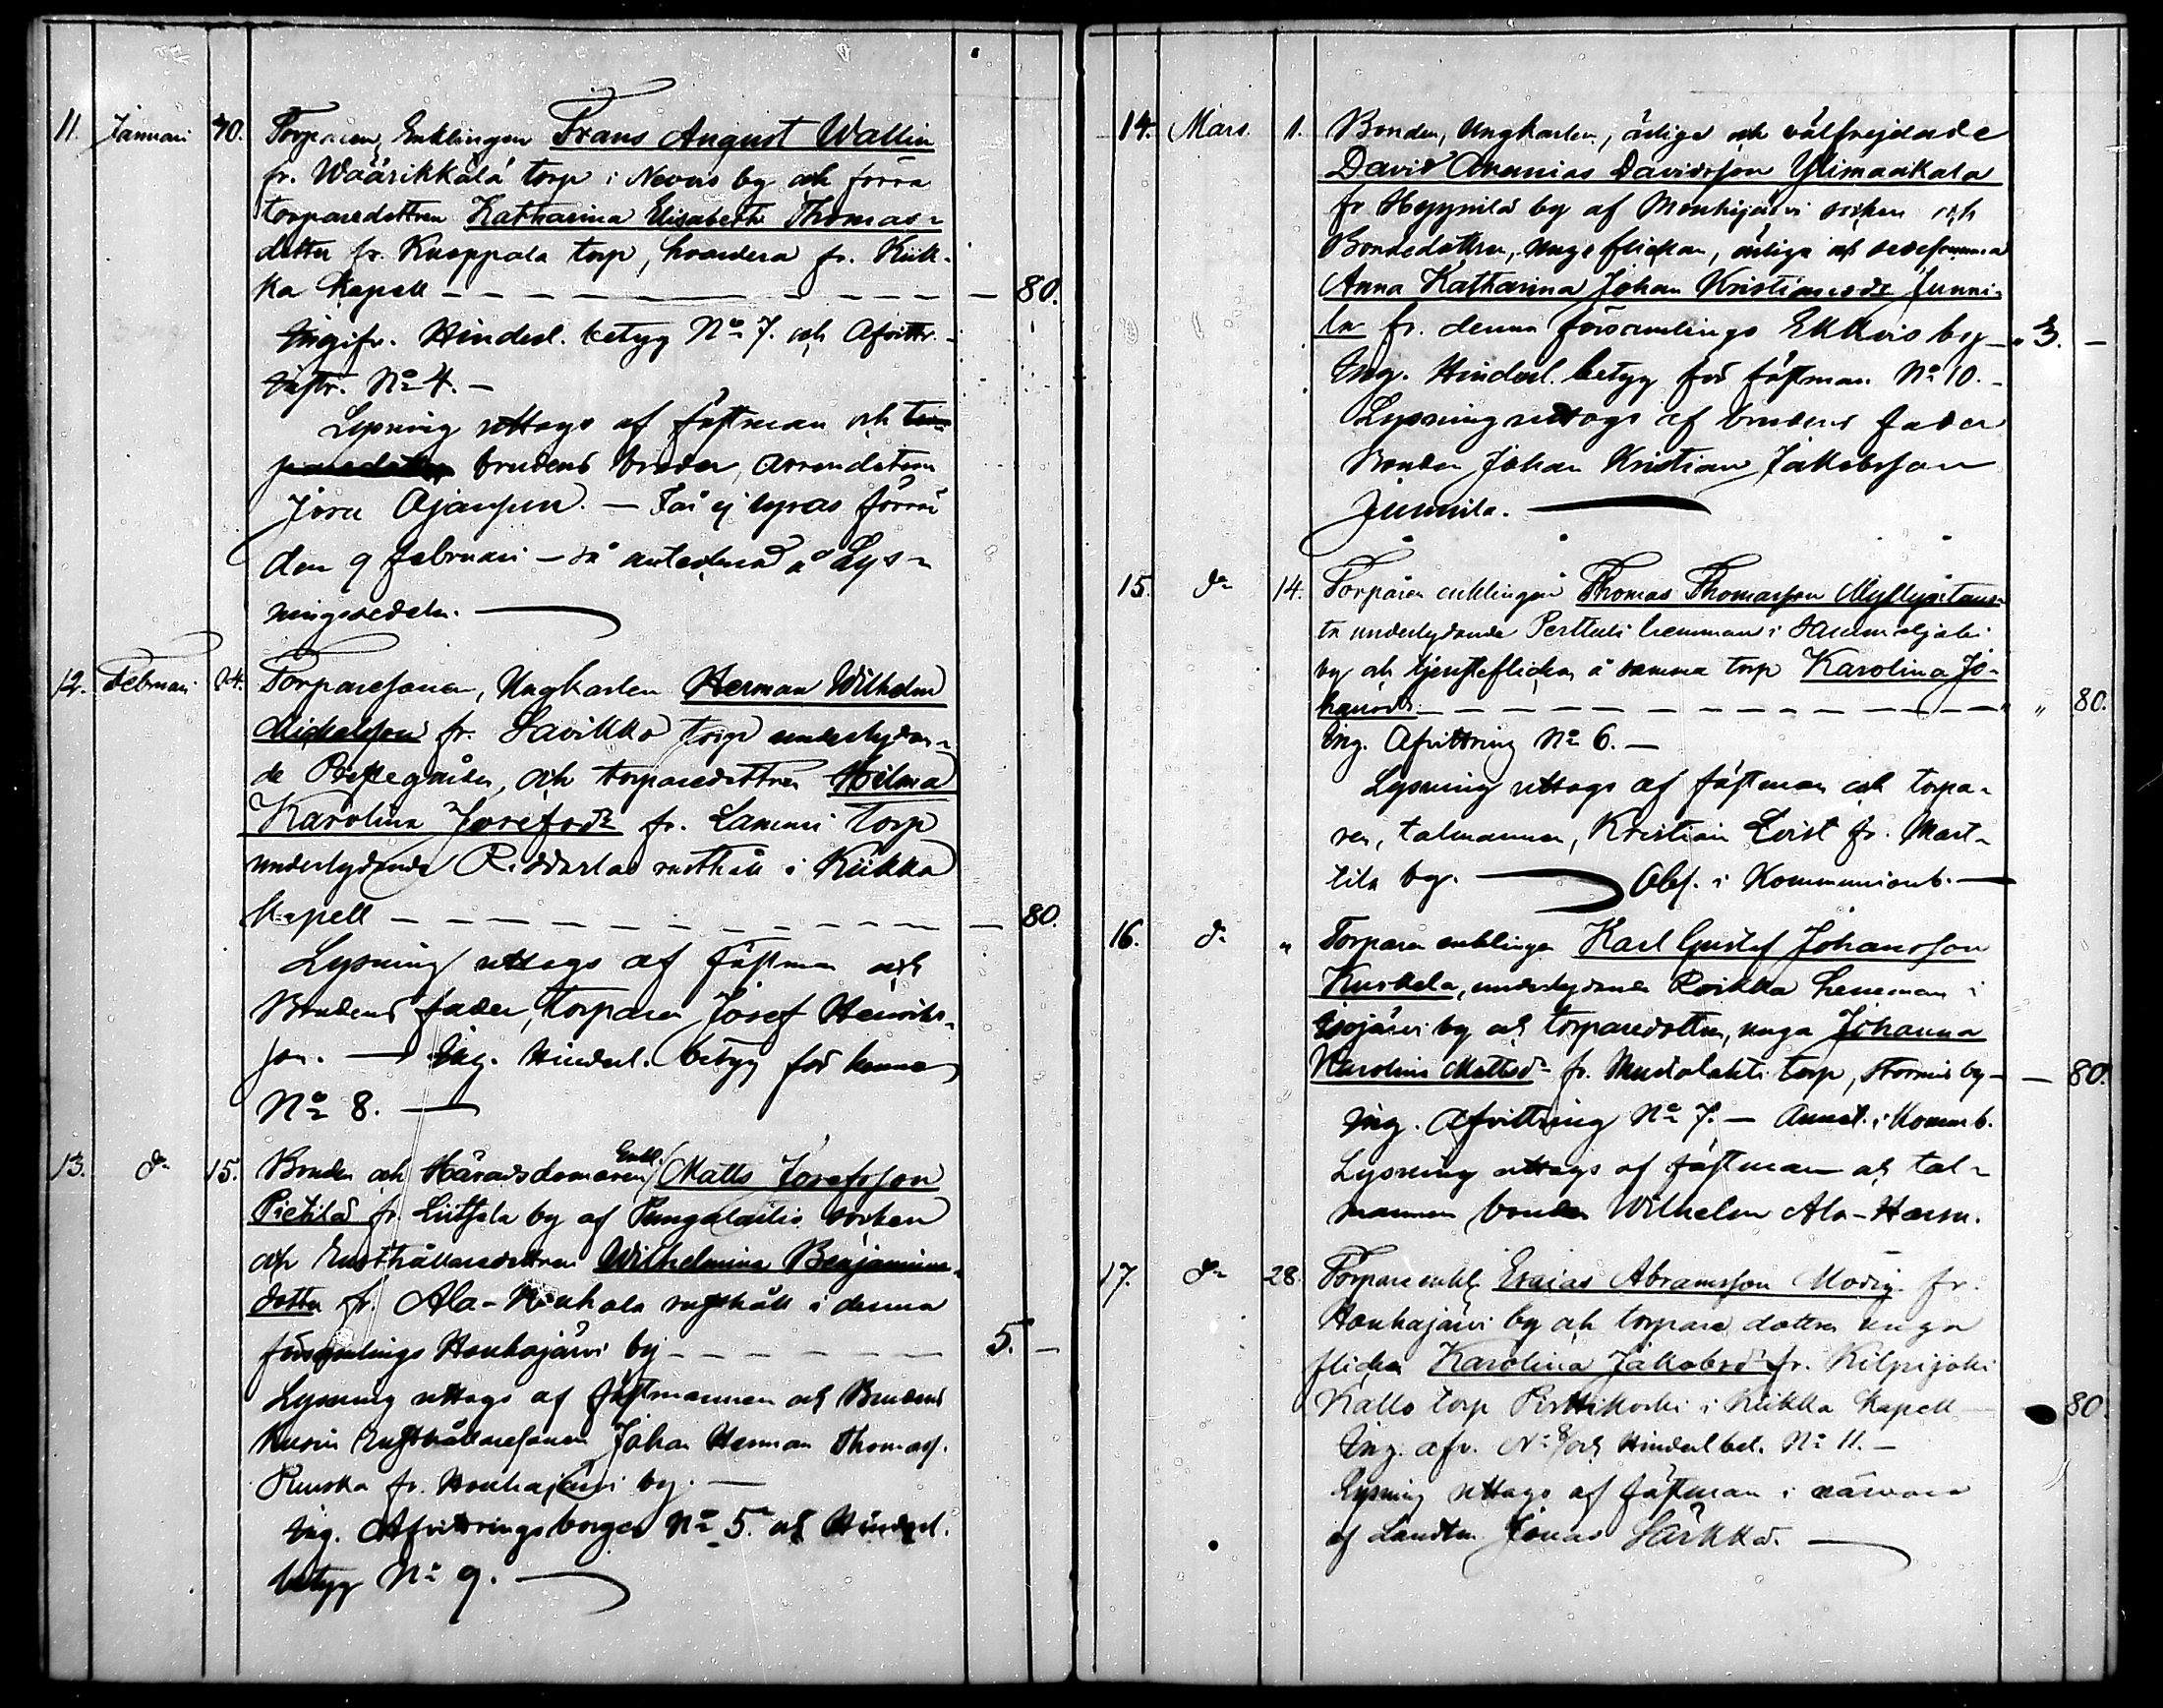 11. Januari 30. Torparen, Enklingen Frans August Wallin
fr. Wäärikkälä torp i Newois by och förra
torparedottren Katharina Elisabeth Thomas-
dotter fr. Knappala torp, hvardera fr. Kiik-
ka kapell — 80.
Ingifv. Hinderl. betyg No 7. och Afvittr.
instr. No 4. —
Lysning uttogs af fästman och
brudens broder, Arrendatorn
— Får ej lysas förrän
den 9 februari — så antecknad å Lys-
ningssedeln. —
12. Februari 14. Torparesonen, Ungkarlen Herman Wilhelm
Michelsson fr. Savikko torp underlydan-
de Prestegården, och torparedottren Hilma
Karolina Josefsdr fr. Lammi torp
underlydande Ridderla rusthåll i Kiikka
Kapell — 80.
Lysning uttogs af fästman och
Brudens fader, torparen Josef Henriks-
son. — Ing. Hinderl. betyg för henne
No 8. —
13. do 15. Bonden och Häradsdomaren Enkl. Matts Josefsson
Pietilä fr. Liitsala by af Pungalaitio socken
och Rusthållaredottren Wilhelmina Benjamins-
dotter fr. Ala-Houhala rusthåll i denna
församlings Houhajärvi by — 5. —
Lysning uttogs af fästmannen och Brudens
Kusin Rusthållaresonen Johan Herman Thomass.
fr. Houhajärvi by. —
Ing. Afvittringsborgen No 5. och Hinderl.
betyg No 9. —
14. Mars 1. Bonden, Ungkarlen, ärliga och välfrejdade
David Ananias Davidsson Ylimaakala
fr Heynilä by af Mouhijärvi socken och
Bondedottren, unga flickan, ärliga och sedesamma
Anna Katharina Johan Kristiansdr Junni-
la fr. denna församlings Ekkois by — " 3. —
Ing. Hinderl. betyg för fästman No 10. —
Lysning uttogs af brudens fader
Bonden Johan Kristian Jakobsson
Junnila. —
15. do 14. Torparen enklingen Thomas Thomasson
ta underlydande Perttuli hemman i Sammaljoki
by och tjensteflickan å samma torp Karolina Jo-
hansdr — " 80.
Ing. Afvittring No 6. —
Lysning uttogs af fästman och torpa-
ren, talmannen, Kristian Leist fr. Mart-
tila by. — Abs. i Kommunionb. —
16. do " Torparen enklingen Karl Gustaf Johansson
Kuskela, underlydande Roikka hemman i
Isojärvi by och torparedottren, unga Johanna
Karolina Mattsdr fr. Mustalahti torp, Stormis by — — 80.
Ing. Afvittring No 7. — Annot. i Kommb.
Lysning uttogs af fästman och tal-
mannen bonden Wilhelm Ala-Harm.
17. do 28. Torpare enkl. Esaias Abramsson Modig fr.
Houhajärvi by och torpare dottren unga
flickan Karolina Jakobsdr fr. Kilpijoki
Kallo torp Perttikoski i Kiikka Kapell — 80.
Ing. afv. No 8 och Hinderl bet. No 11. —
Lysning uttogs af fästman i närvaro
af Landtm Jonas Särkkä. —